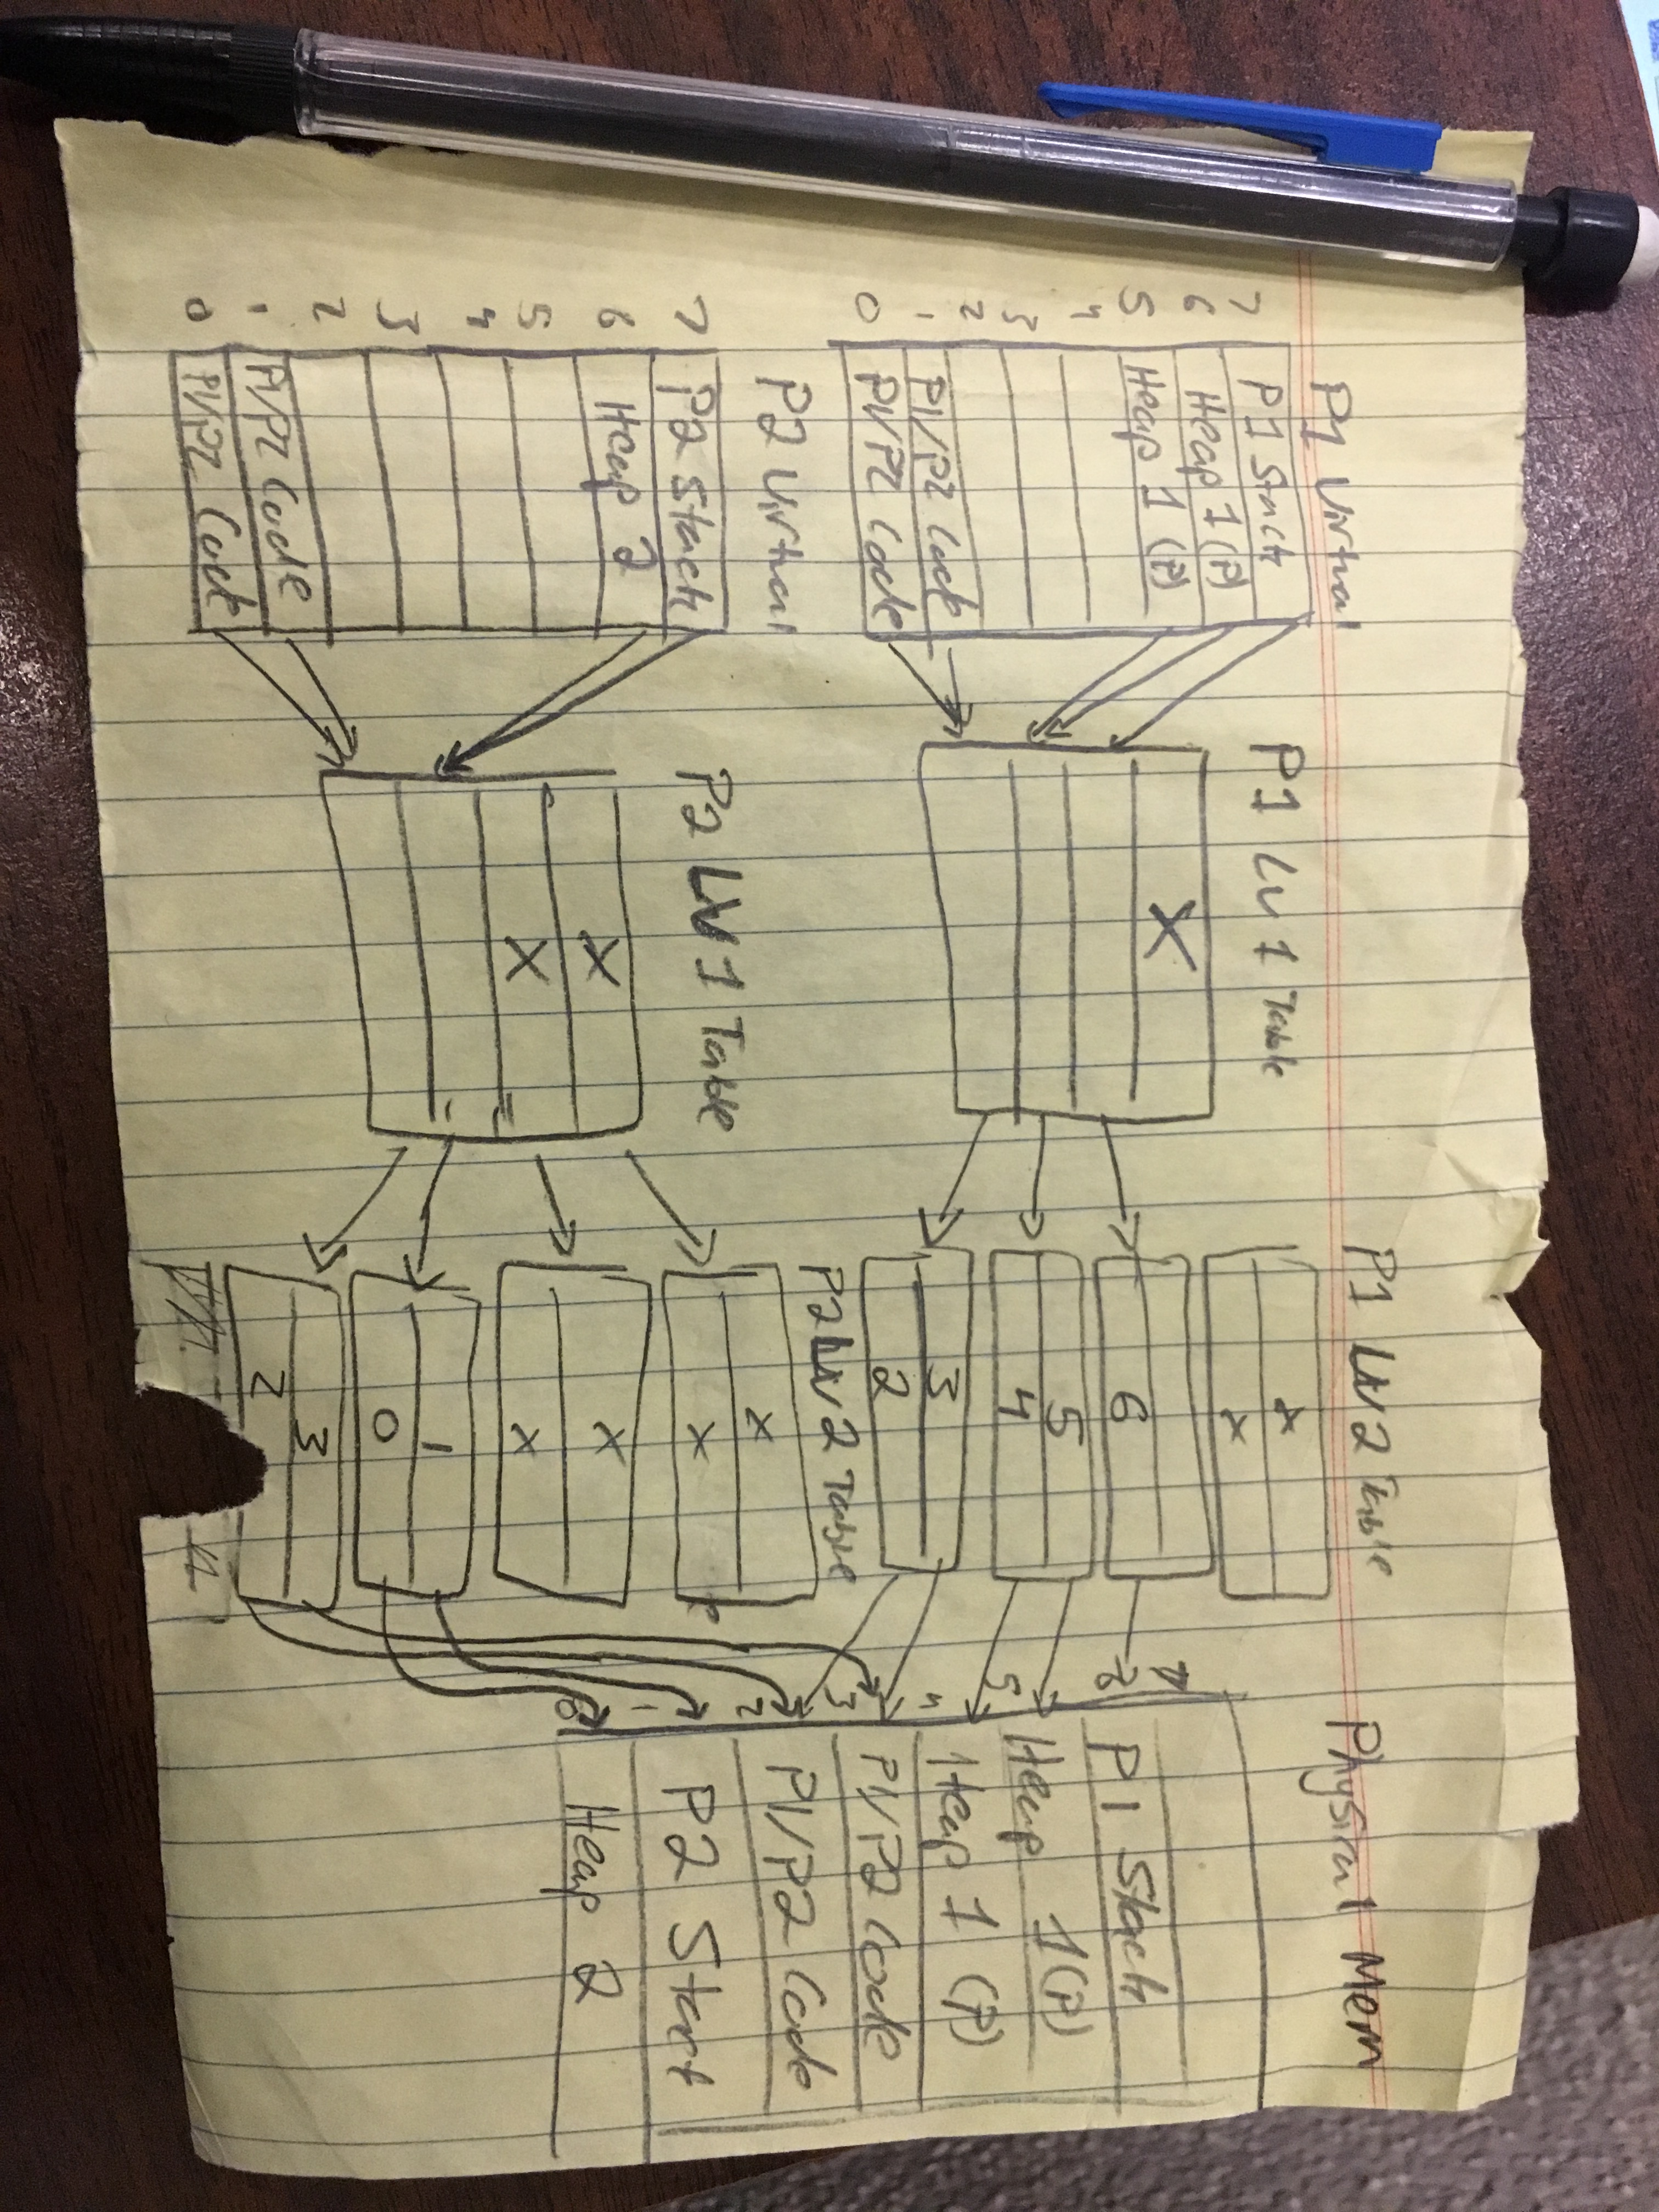 P1 Virtual
7 P1 Stack
6 Heap 1 (P)
5 Heap 1 (P)
4
3
2
1 P1/P2 Code
0 P1/P2 Code
P2 Virtual
7 P2 Stack
6 Heap 2
5
4
3
2
1 P1/P2 Code
0 P1/P2 Code
P1 LV 1 Table
X
P2 LV 1 Table
X
X
P1 LV 2 Table
x
x
6
5
4
3
2
P2 LV 2 Table
x
x
x
x
1
0
3
2
Physical Mem
7
6 P1 Stack
5 Heap 1 (P)
4 Heap 1 (P)
3 P1/P2 Code
2 P1/P2 Code
1 P2 Start
0 Heap 2